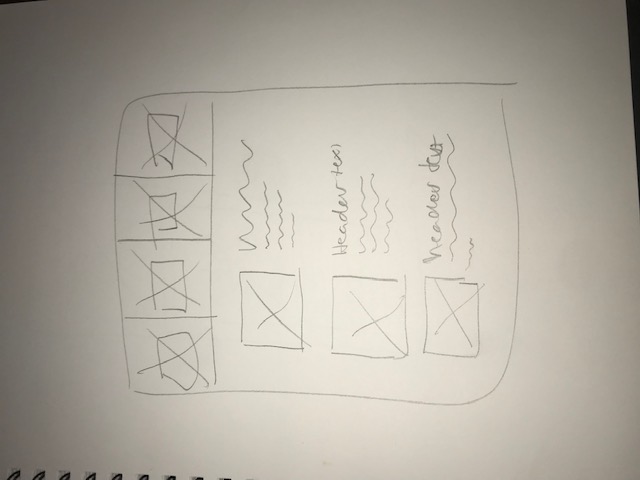 Header text
header text